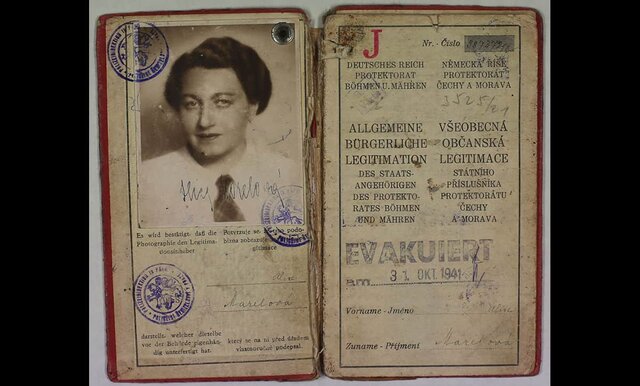 Es wird bestätigt, daß die
Photographie den Legitima-
tionsinhaber
Potvrzuje se, že
podo-
bizna zobrazuje
gitimace
Marelová
darstellt, welcher dieselbe
vor der Behörde eigenhän-
dig unterfertigt hat.
který se na ní před úřadem
vlastnoručně podepsal.
J
Nr. - Číslo
DEUTSCHES REICH
PROTEKTORAT
BÖHMEN U. MÄHREN
NĚMECKÁ ŘÍŠE
PROTEKTORÁT
ČECHY A MORAVA
3525/21
ALLGEMEINE
BÜRGERLICHE
LEGITIMATION
DES STAATS-
ANGEHÖRIGEN
DES PROTEKTO-
RATES BÖHMEN
UND MÄHREN
VŠEOBECNÁ
OBČANSKÁ
LEGITIMACE
STÁTNÍHO
PŘÍSLUŠNÍKA
PROTEKTORÁTU
ČECHY
A MORAVA
EVAKUIERT
am 31. OKT. 1941
Vorname - Jméno
Zuname - Příjmení Marelová